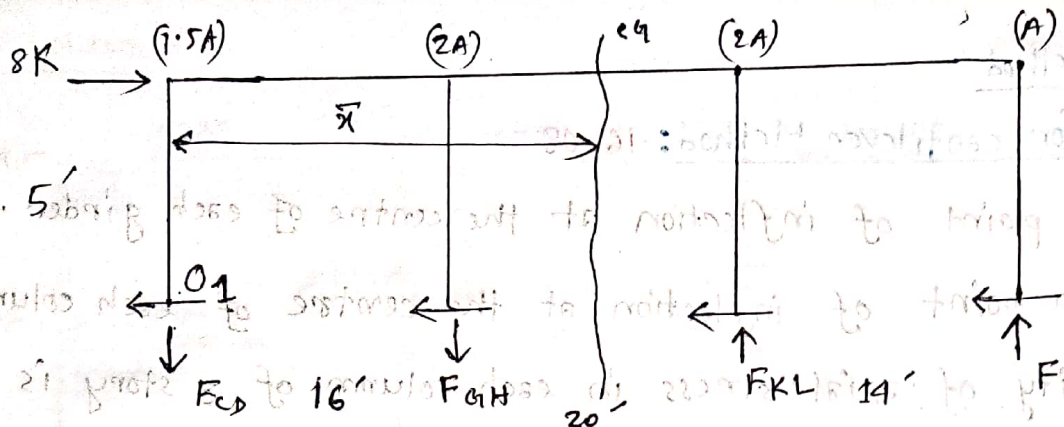 (1.5A) (2A) eq (2A) (A)
8K
x̄
5'
O1
F_CD 16' F_GH 20' F_KL 14' F